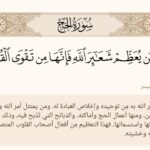 سُورَةُ الحَجِّ
وَمَن يُعَظِّمْ شَعَائِرَ اللَّهِ فَإِنَّهَا مِن تَقْوَى
الله به من توحيده وإخلاص العبادة له. ومن يمتثل أمر الله و
ين، ومنها أعمال الحج وأماكنه، والذبائح التي تُذبح فيه، وذلك
واستسمانها، فهذا التعظيم من أفعال أصحاب القلوب المتصف
وخشيته.